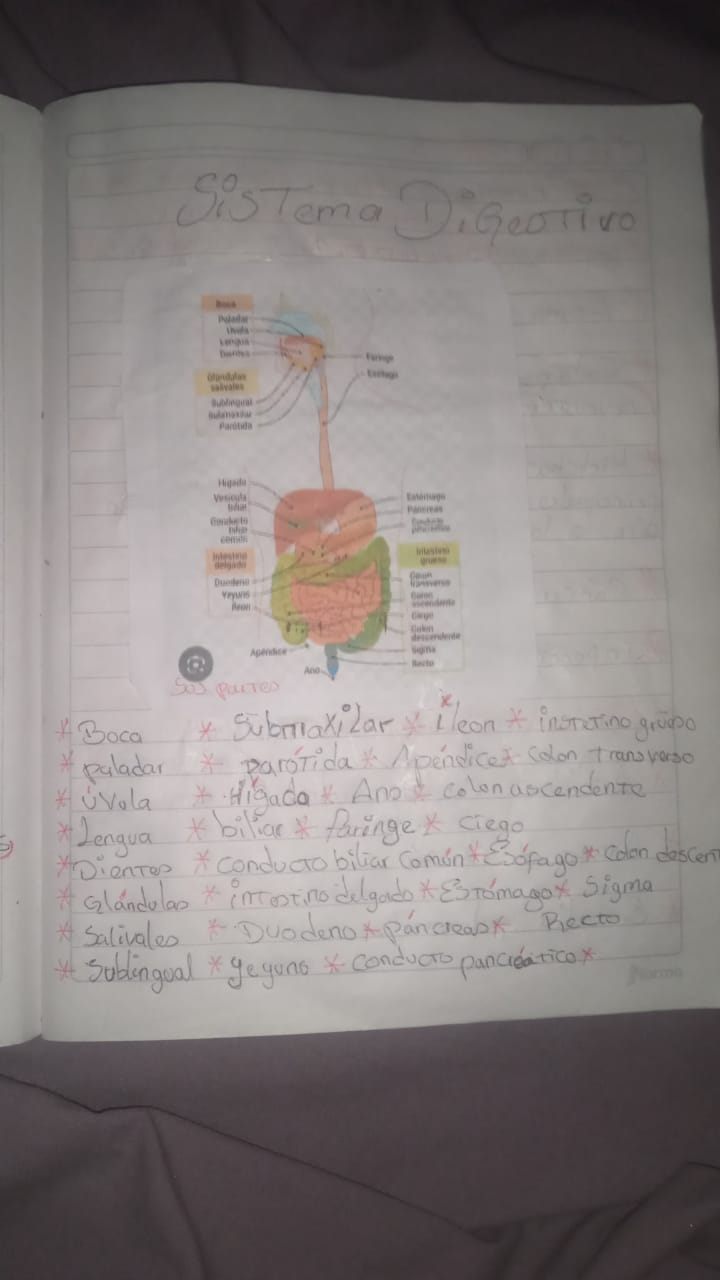 Sistema Digestivo
Boca
Paladar
Úvula
Lengua
Dientes
Glándulas
salivales
Sublingual
Submaxilar
Parótida
Faringe
Esófago
Hígado
Vesícula
biliar
Conducto
biliar
común
Intestino
delgado
Duodeno
Yeyuno
Íleon
Apéndice
Ano
Estómago
Páncreas
Conducto
pancreático
Intestino
grueso
Colon
transverso
Colon
ascendente
Ciego
Colon
descendente
Sigma
Recto
Sus partes
* Boca * Submaxilar * Íleon * instetino grueso
* paladar * parótida * Apéndice * colon transverso
* úvola * Hígado * Ano * colon ascendente
* Lengua * biliar * faringe * ciego
* Dientes * conducto biliar común * Esófago * Colon descen
* Glándulas * intestino delgado * Estómago * Sigma
* Salivales * Duodeno * páncreas * Recto
* Sublingual * yeyuno * conducto pancréatico *
norma